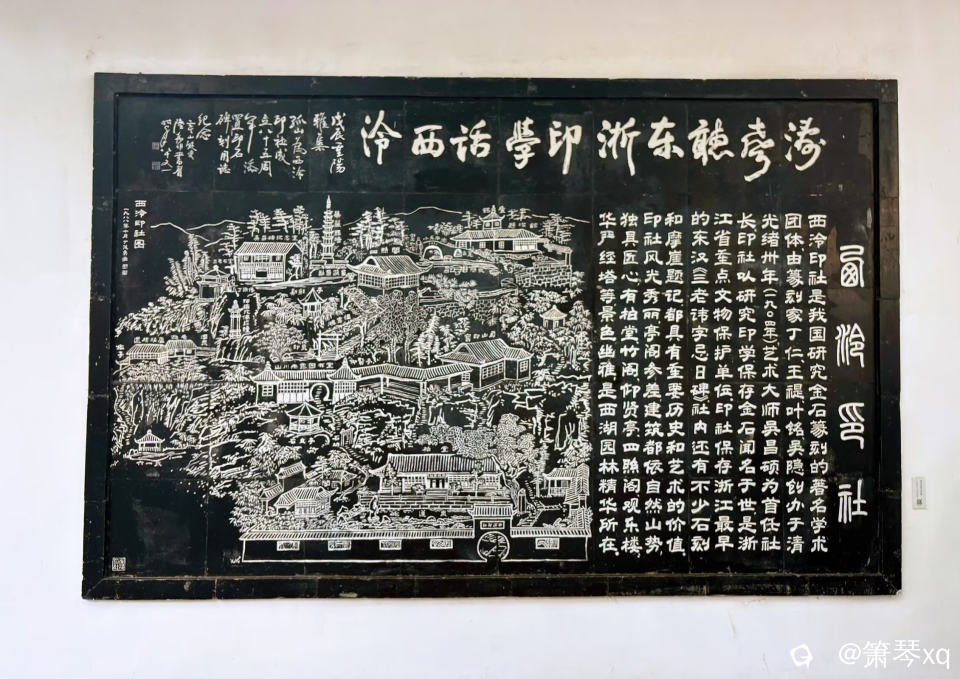 涛聲聽东浙印學话西泠
戊辰重陽
雅集
孤山為西泠
印社成
立八十五周
年
置印石
碑刻用誌
纪念
西泠印社
西泠印社是我国研究金石篆刻的著名学术
团体由篆刻家丁仁王禔叶铭吴隐创办于清
光绪卅年(一九〇四年)艺术大师吴昌硕为首任社
长印社以研究印学保存金石闻名于世是浙
江省重点文物保护单位印社保存浙江最早
的东汉《三老讳字忌日碑》社内还有不少石刻
和摩崖题记都具有重要历史和艺术的价值
印社风光秀丽亭阁参差建筑都依自然山势
独具匠心有柏堂竹阁仰贤亭四照阁观乐楼
华严经塔等景色幽雅是西湖园林精华所在
西泠印社图
山川雨露图书室
柏堂
@箫琴xq